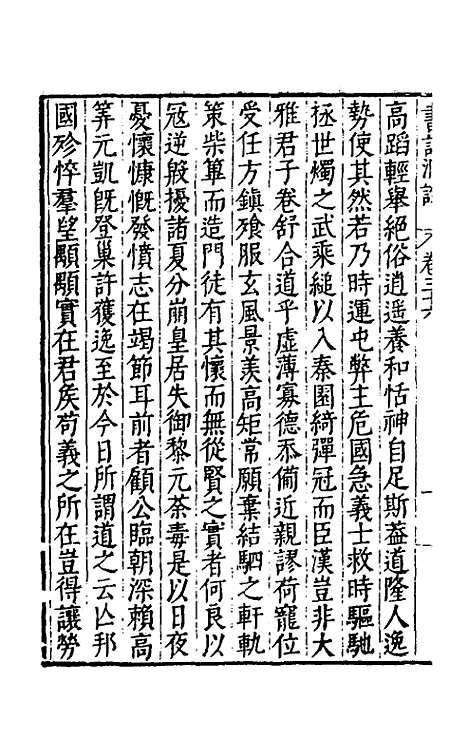 書記洞詮 卷三十六 一
高蹈輕舉絕俗逍遥養和恬神自足斯葢道隆人逸
勢使其然若乃時運屯弊主危國急義士救時驅馳
拯世燭之武乘縋以入秦園綺彈冠而臣漢豈非大
雅君子卷舒合道乎虛薄寡德忝備近親謬荷寵位
受任方鎮飱服玄風景美高矩常願棄結駟之軒軌
策柴蓽而造門徒有其懷而無從賢之實者何良以
冦逆殷擾諸夏分崩皇居失御黎元荼毒是以日夜
憂懷慷慨發憤志在竭節耳前者顧公臨朝深賴高
筭元凱旣登巢許獲逸至於今日所謂道之云亾邦
國殄悴羣望顒顒實在君矦苟義之所在豈得讓勞